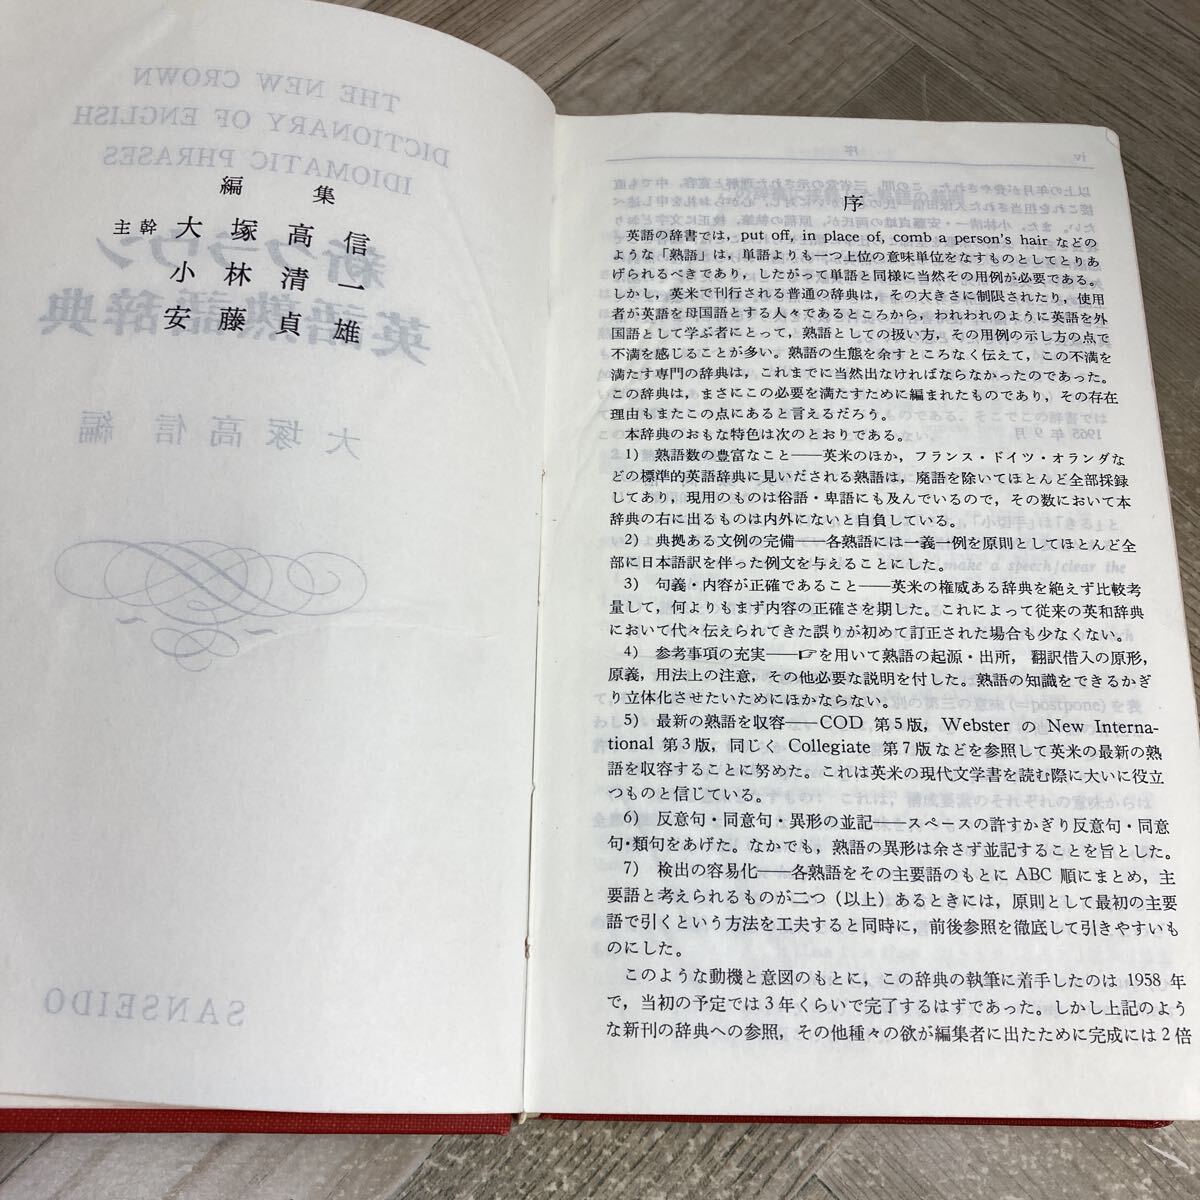 編集
主幹 大塚高信
小林清一
安藤貞雄
THE NEW CROWN
DICTIONARY OF ENGLISH
IDIOMATIC PHRASES
新クラウン
英語熟語辞典
大塚高信 編
SANSEIDO
序
英語の辞書では，put off, in place of, comb a person's hair などの
ような「熟語」は，単語よりも一つ上位の意味単位をなすものとしてとりあ
げられるべきであり，したがって単語と同様に当然その用例が必要である。
しかし，英米で刊行される普通の辞典は，その大きさに制限されたり，使用
者が英語を母国語とする人々であるところから，われわれのように英語を外
国語として学ぶ者にとって，熟語としての扱い方，その用例の示し方の点で
不満を感じることが多い。熟語の生態を余すところなく伝えて，この不満を
満たす専門の辞典は，これまでに当然出なければならなかったのであった。
この辞典は，まさにこの必要を満たすために編まれたものであり，その存在
理由もまたこの点にあると言えるだろう。
本辞典のおもな特色は次のとおりである。
1) 熟語数の豊富なこと――英米のほか，フランス・ドイツ・オランダな
どの標準的英語辞典に見いだされる熟語は，廃語を除いてほとんど全部採録
してあり，現用のものは俗語・卑語にも及んでいるので，その数において本
辞典の右に出るものは内外にないと自負している。
2) 典拠ある文例の完備――各熟語には一義一例を原則としてほとんど全
部に日本語訳を伴った例文を与えることにした。
3) 句義・内容が正確であること――英米の権威ある辞典を絶えず比較考
量して，何よりもまず内容の正確さを期した。これによって従来の英和辞典
において代々伝えられてきた誤りが初めて訂正された場合も少なくない。
4) 参考事項の充実――☞を用いて熟語の起源・出所，翻訳借入の原形，
原義，用法上の注意，その他必要な説明を付した。熟語の知識をできるかぎ
り立体化させたいためにほかならない。
5) 最新の熟語を収容――COD 第5版，Webster の New Interna-
tional 第3版，同じく Collegiate 第7版などを参照して英米の最新の熟
語を収容することに努めた。これは英米の現代文学書を読む際に大いに役立
つものと信じている。
6) 反意句・同意句・異形の並記――スペースの許すかぎり反意句・同意
句・類句をあげた。なかでも，熟語の異形は余さず並記することを旨とした。
7) 検出の容易化――各熟語をその主要語のもとに ABC 順にまとめ，主
要語と考えられるものが二つ（以上）あるときには，原則として最初の主要
語で引くという方法を工夫すると同時に，前後参照を徹底して引きやすいも
のにした。
このような動機と意図のもとに，この辞典の執筆に着手したのは 1958 年
で，当初の予定では3年くらいで完了するはずであった。しかし上記のよう
な新刊の辞典への参照，その他種々の欲が編集者に出たために完成には2倍